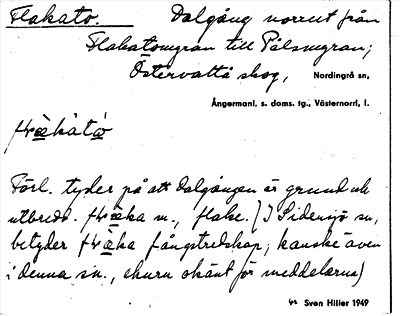 Flakato. Dalgång norrut från
Flakatomyran till Pålsmyran;
Östervattå skog, Nordingrå sn,
Ångermanl. s. doms. tg., Västernorrl. l.
Förl. tyder på att dalgången är grund och
utbredd. m., flake. (I Sidensjö sn,
betyder fångstredskap; kanske även
i denna sn., ehuru okänt för meddelarna)
Sven Hiller 1949